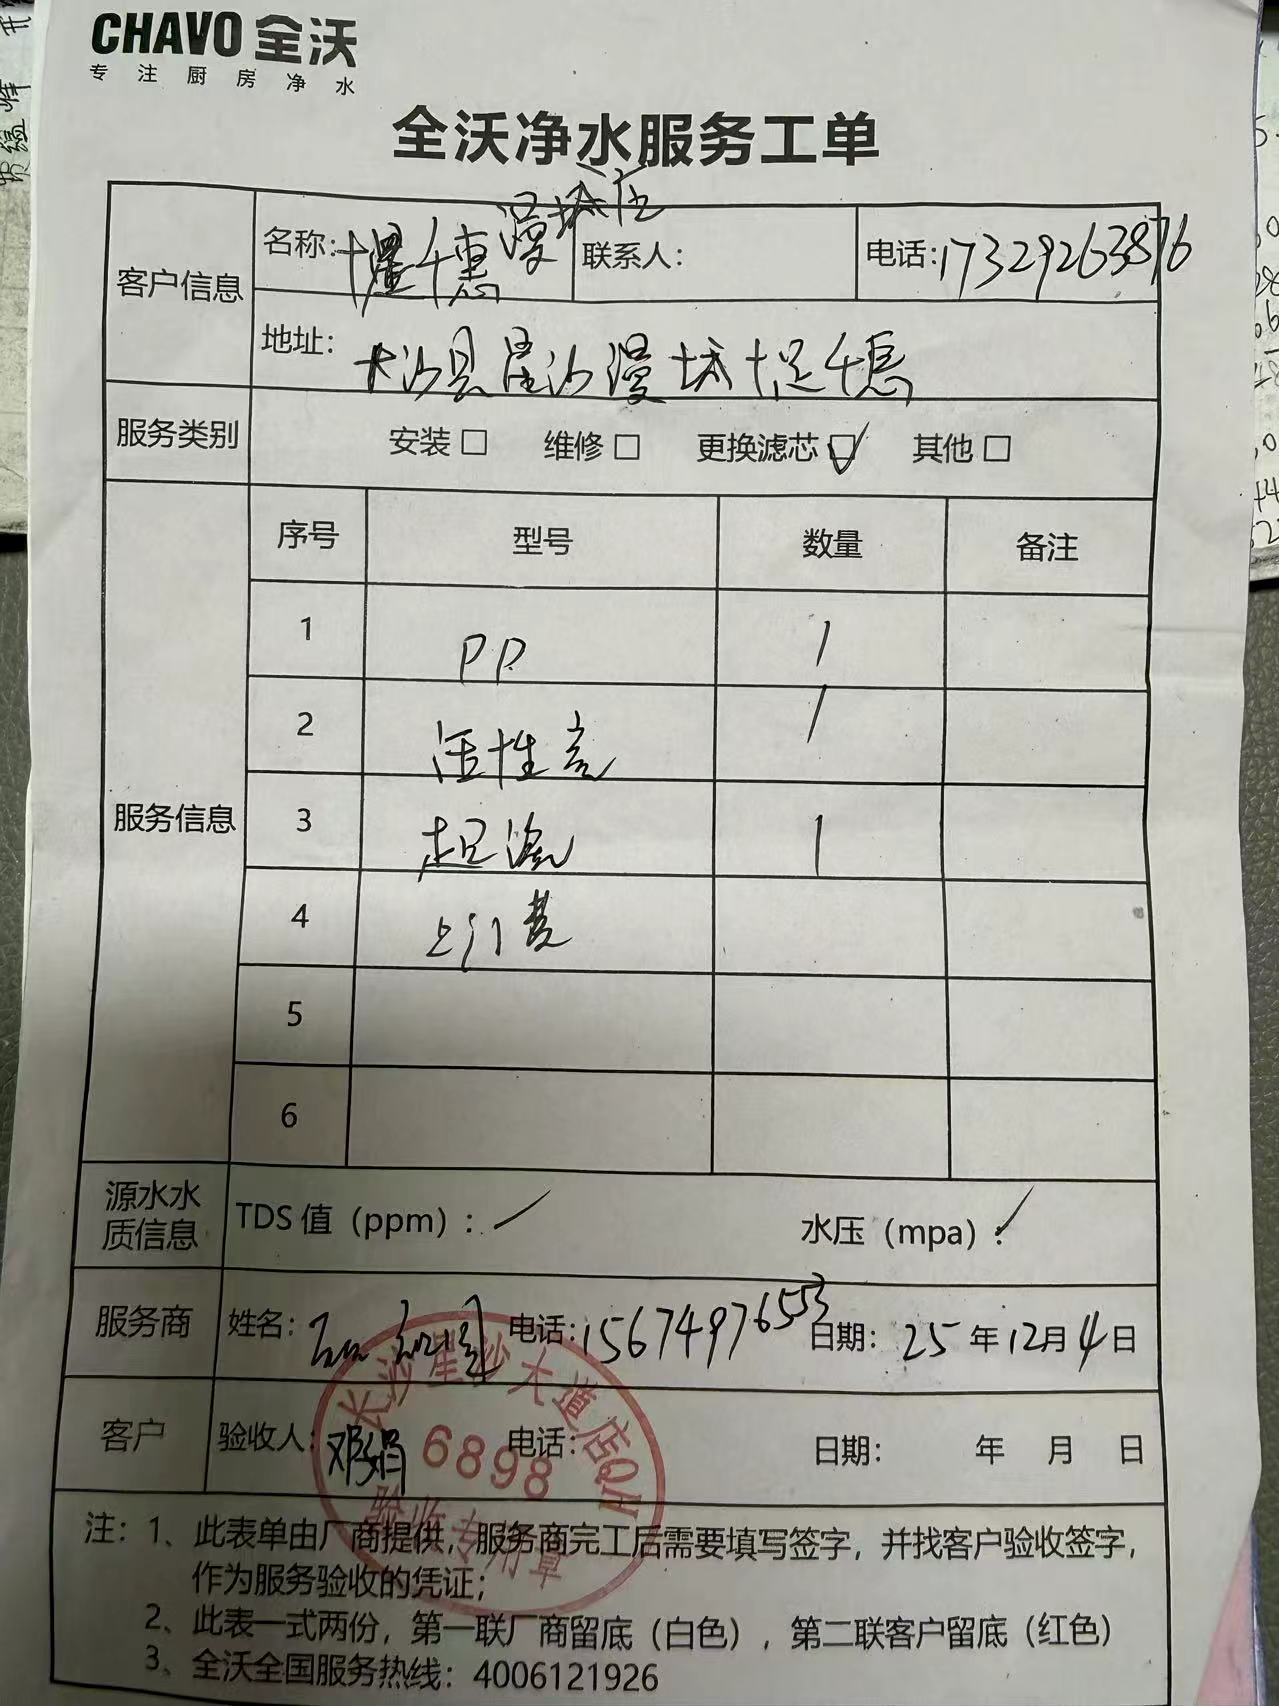 CHAVO 全沃
专注厨房净水
全沃净水服务工单
客户信息
名称: 千惠漫城店
联系人:
电话: 17329263876
地址: 长沙县星沙漫城 千惠
服务类别
安装□ 维修□ 更换滤芯☑ 其他□
服务信息
序号 型号 数量 备注
1 PP 1
2 活性炭 1
3 超滤 1
4 上门费
5
6
源水水质信息
TDS 值（ppm）: ✓ 水压（mpa）: ✓
服务商
姓名: 电话: 15674976553 日期: 25年12月4日
客户
验收人: 邓娟 电话: 日期: 年 月 日
长沙星沙大道店QH
6898
验收专用章
注: 1、此表单由厂商提供, 服务商完工后需要填写签字, 并找客户验收签字,
作为服务验收的凭证;
2、此表一式两份, 第一联厂商留底（白色）, 第二联客户留底（红色）
3、全沃全国服务热线: 4006121926